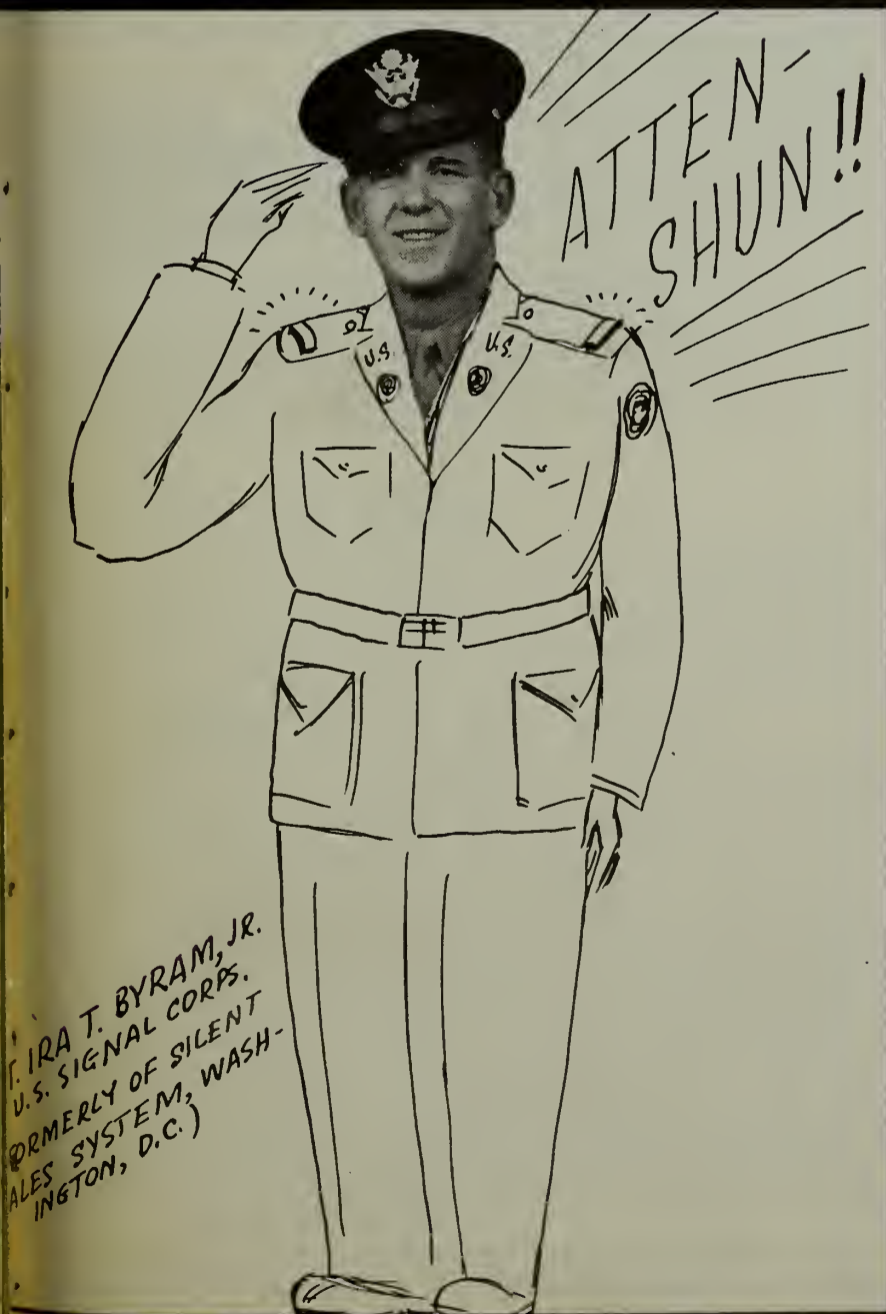 ATTEN-
SHUN!!
U.S. U.S.
T. IRA T. BYRAM, JR.
U.S. SIGNAL CORPS.
ORMERLY OF SILENT
ALES SYSTEM, WASH-
INGTON, D.C.)